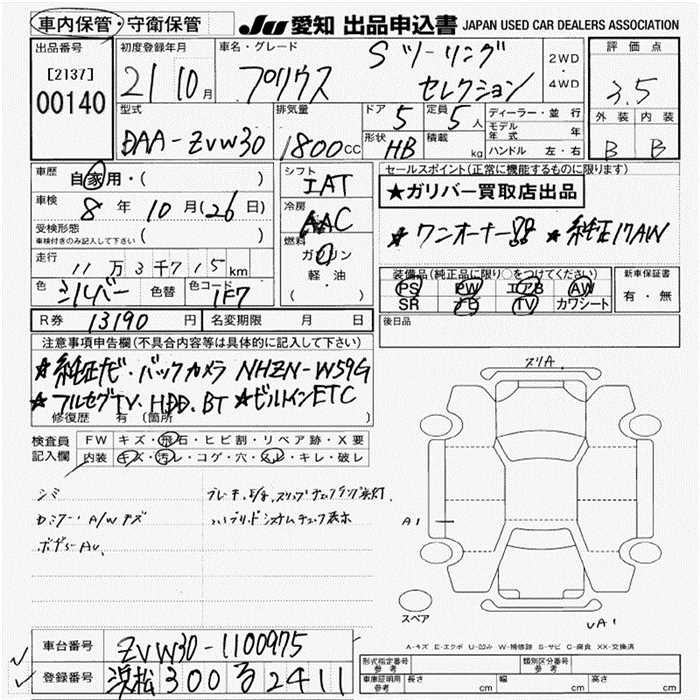 車内保管・守衛保管 JU 愛知 出品申込書 JAPAN USED CAR DEALERS ASSOCIATION
出品番号 [2137] 00140
初度登録年月 21 10月
車名・グレード プリウス Sツーリング セレクション
2WD・4WD
評価点 3.5
外装 B 内装 B
型式 DAA-ZVW30
排気量 1800cc
ドア 5 定員 5人
形状 HB 積載 kg
ディーラー・並行
モデル年式 年
ハンドル 左・右
車歴 自家用・( )
車検 8年 10月(26日)
受検形態
車検付きのみ記入して下さい ( )
走行 11万3千715km
色 シルバー 色替 色コード 1F7
シフト IAT
冷房 AAC
燃料 ガソリン 軽油 ( )
セールスポイント(正常に機能するものに限ります)
★ガリバー買取店出品
★ワンオーナー ★純正17AW
装備品(純正品に限り○をつけてください)
PS PW エアB AW
SR ナビ TV カワシート
新車保証書 有・無
R券 13190円 名変期限 月 日
後日品
注意事項申告欄(不具合内容等は具体的に記入して下さい)
★純正ナビ・バックカメラ NHZN-W59G
★フルセグTV.HDD.BT ★ビルトインETC
修復歴 有 (箇所 )
検査員記入欄
FW キズ・飛石・ヒビ割・リペア跡・X要
内装 キズ・汚レ・コゲ・穴・スレ・キレ・破レ
シミ
カミナー・A/Wキズ
ボデーAU
ブレーキ、E/g、スリップチェックランプ点灯
ハイブリッドシステムチェック表示
スリA
A1
UA1
スペア
A-キズ E-エクボ U-凹み W-補修跡 S-サビ C-腐食 XX-交換済
車台番号 ZVW30-1100975
登録番号 浜松300る2411
形式指定番号 参考
類別区分番号 参考
車庫証明用 参考 長さ cm 幅 cm 高さ cm